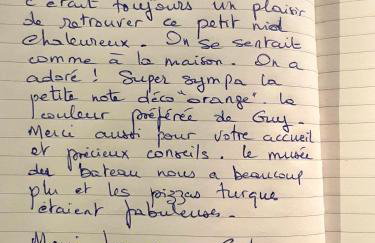 c'était toujours un plaisir
de retrouver ce petit nid
chaleureux. On se sentait
comme à la maison. On a
adoré ! Super sympa la
petite note déco "orange". la
couleur préférée de Guy.
Merci aussi pour votre accueil
et précieux conseils. le musée
des bateau nous a beaucoup
plu et les pizzas turque
étaient fabuleuse.